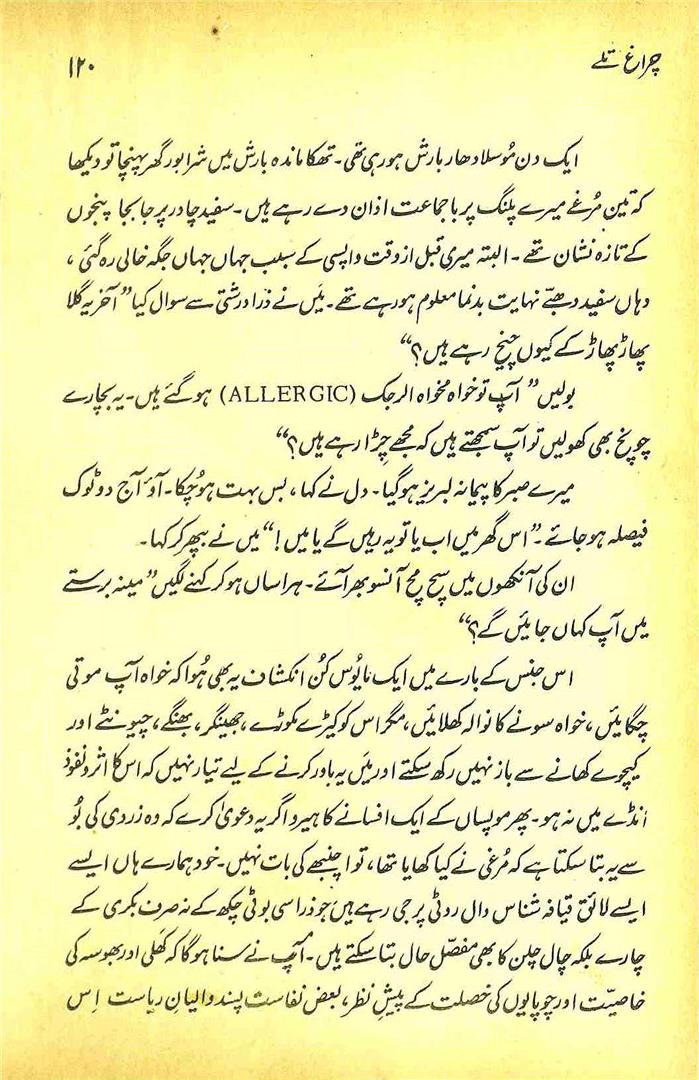 چراغ تلے
۱۲۰
ایک دن مُوسلا دھار بارش ہو رہی تھی۔ تھکا ماندہ بارش میں شرابور گھر پہنچا تو دیکھا
کہ تین مُرغے میرے پلنگ پر باجماعت اذان دے رہے ہیں۔ سفید چادر پر جابجا پنجوں
کے تازہ نشان تھے۔ البتہ میری قبل از وقت واپسی کے سبب جہاں جہاں جگہ خالی رہ گئی،
وہاں سفید دھبّے نہایت بدنما معلوم ہو رہے تھے۔ میَں نے ذرا درشتی سے سوال کیا ”آخر یہ گلا
پھاڑ پھاڑ کے کیوں چیخ رہے ہیں؟“
بولیں ”آپ تو خواہ مخواہ الرجک (ALLERGIC) ہو گئے ہیں۔ یہ بچارے
چونچ بھی کھولیں تو آپ سمجھتے ہیں کہ مجھے چِڑا رہے ہیں؟“
میرے صبر کا پیمانہ لبریز ہو گیا۔ دل نے کہا، بس بہت ہو چُکا۔ آؤ آج دو ٹوک
فیصلہ ہو جائے۔ ”اس گھر میں اب یا تو یہ رہیں گے یا میں!“ میں نے بپھر کر کہا۔
ان کی آنکھوں میں سچ مچ آنسو بھر آئے۔ ہراساں ہو کر کہنے لگیں ”مینہ برستے
میں آپ کہاں جائیں گے؟“
اس جنس کے بارے میں ایک مایُوس کُن انکشاف یہ بھی ہُوا کہ خواہ آپ موتی
چگائیں، خواہ سونے کا نوالہ کھلائیں، مگر اس کو کیڑے مکوڑے، جھینگر، بھنگے، چیونٹے اور
کیچوے کھانے سے باز نہیں رکھ سکتے اور میَں یہ باور کرنے کے لیے تیار نہیں کہ اس کا اثر و نفوذ
انڈے میں نہ ہو۔ پھر موپساں کے ایک افسانے کا ہیرو اگر یہ دعویٰ کرے کہ وہ زردی کی بُو
سے یہ بتا سکتا ہے کہ مُرغی نے کیا کھایا تھا، تو اچنبھے کی بات نہیں۔ خود ہمارے ہاں ایسے
ایسے لائق قیافہ شناس دال روٹی پر جی رہے ہیں جو ذرا سی بوٹی چکھ کے نہ صرف بکری کے
چارے بلکہ چال چلن کا بھی مفصّل حال بتا سکتے ہیں۔ آپ نے سنا ہو گا کہ کھَلی اور بھوسہ کی
خاصیّت اور چوپایوں کی خصلت کے پیشِ نظر، بعض نفاست پسند والیانِ ریاست اِس